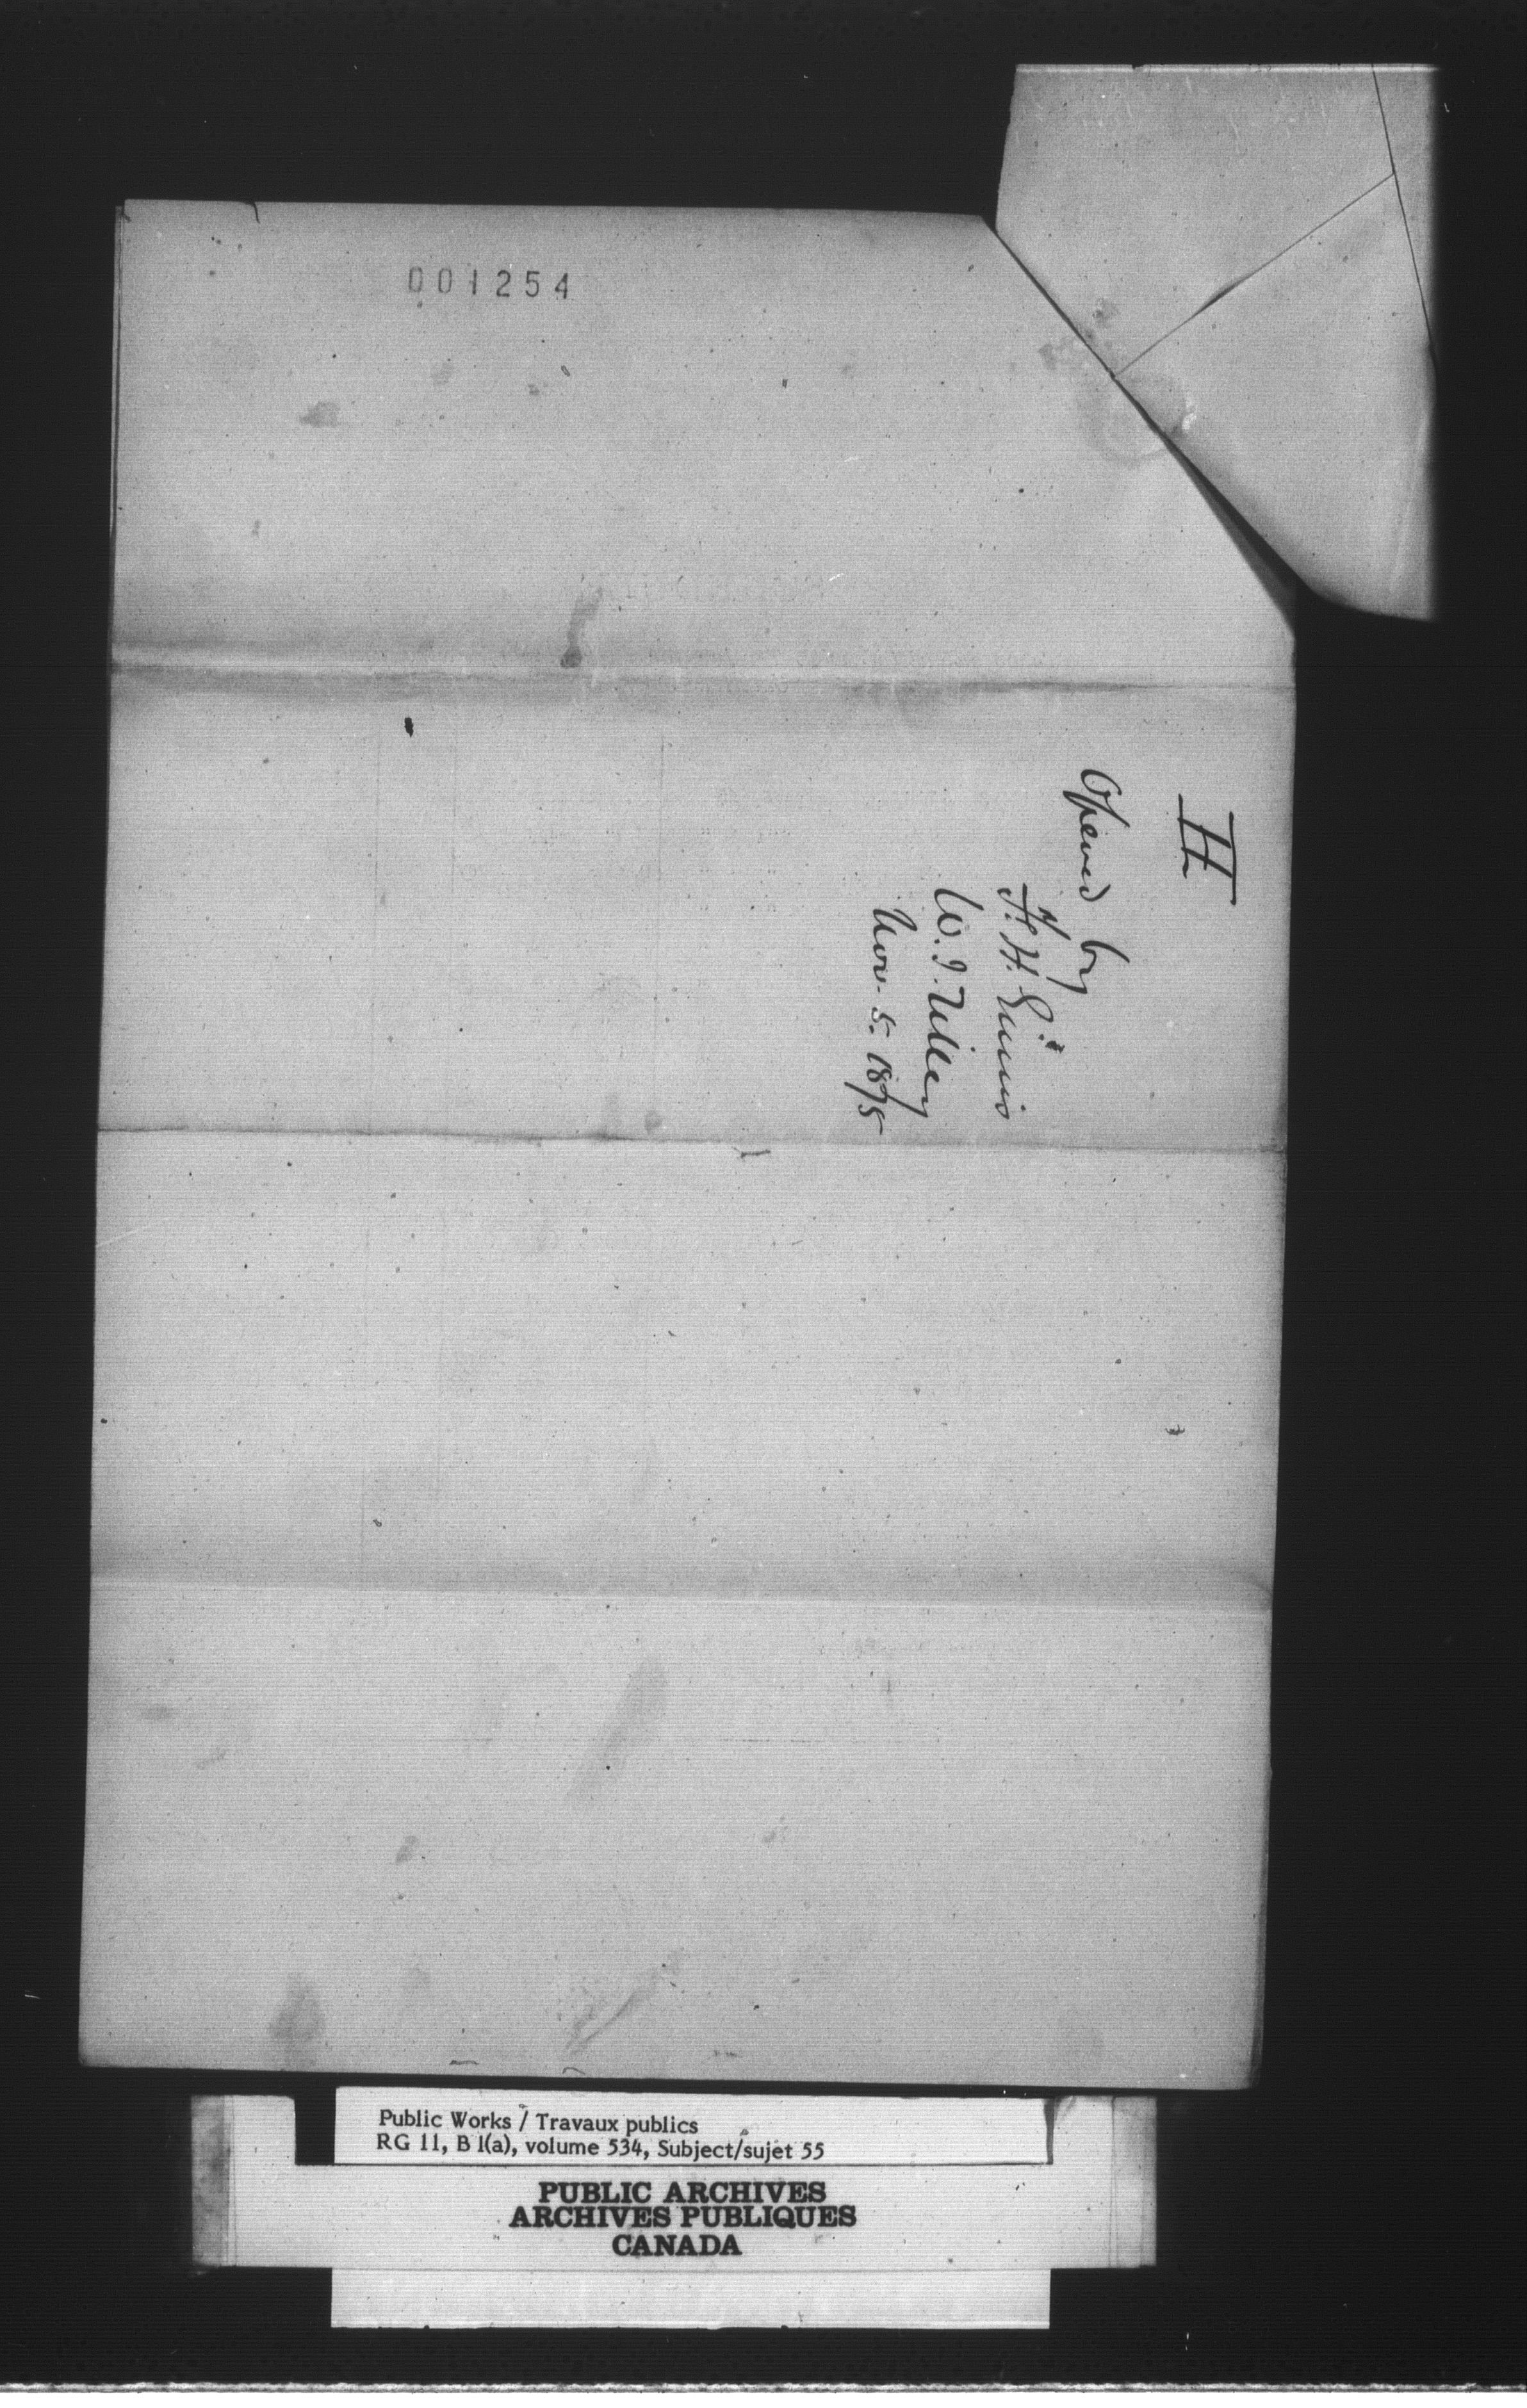 001254
H
Opened by
F. H. Ennis
W. J. Tilley
Nov. 5. 1875
Public Works / Travaux publics
RG 11, B 1(a), volume 534, Subject/sujet 55
PUBLIC ARCHIVES
ARCHIVES PUBLIQUES
CANADA